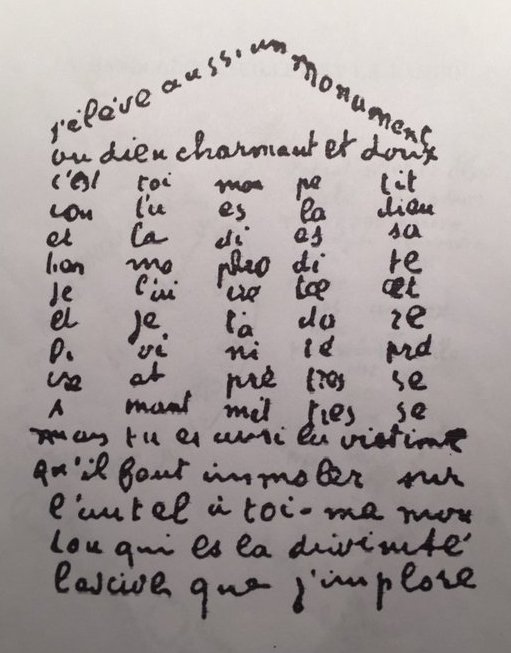 j'élève aussi un monument
au dieu charmant et doux
c'est toi mon pe tit
Lou tu es la dieu
et la di es sa
phro di te
je et
et je t'a do re
Di vi ni té
pré tres se
tres se
mais tu es aussi la victime
qu'il faut immoler sur
l'autel à toi-me mon
Lou qui es la divinité
lascive que j'implore